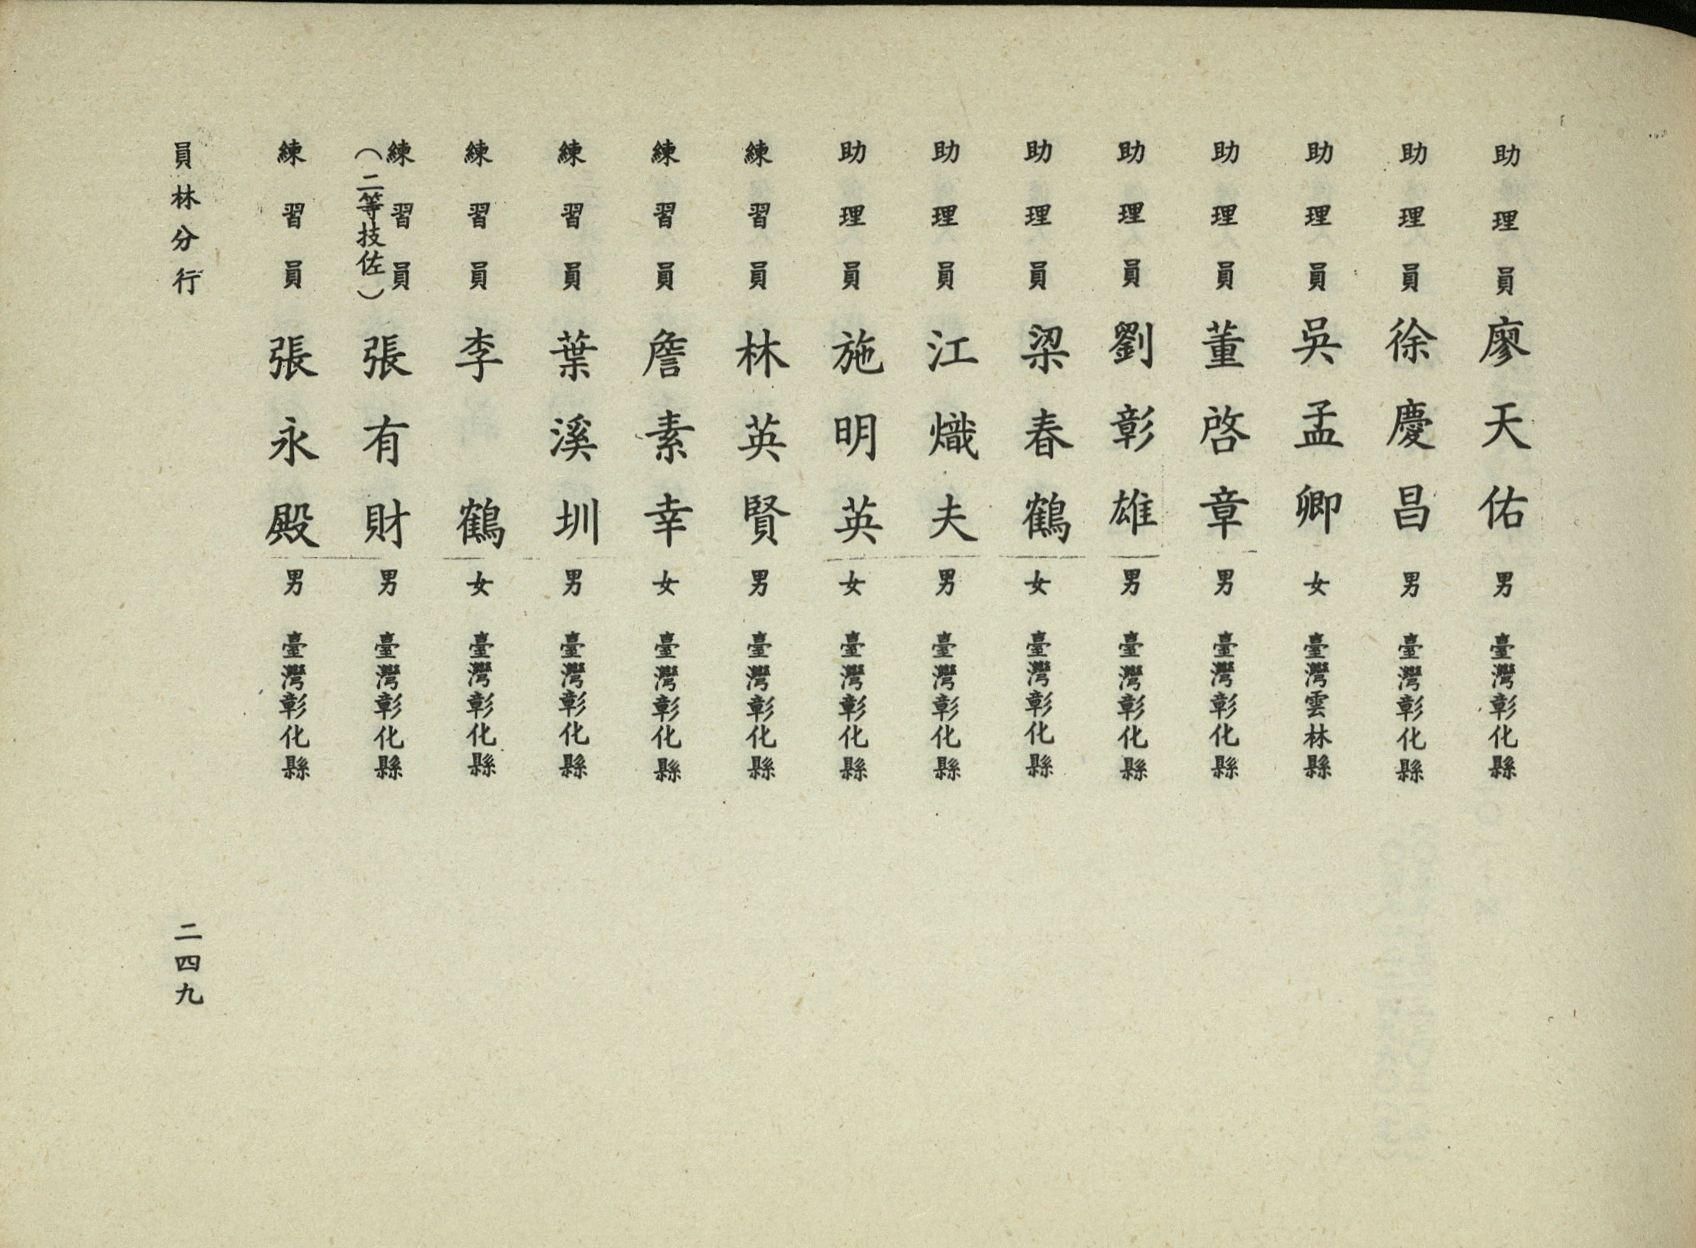 助理員 廖天佑 男 臺灣彰化縣
助理員 徐慶昌 男 臺灣彰化縣
助理員 吳孟卿 女 臺灣雲林縣
助理員 董啓章 男 臺灣彰化縣
助理員 劉彰雄 男 臺灣彰化縣
助理員 梁春鶴 女 臺灣彰化縣
助理員 江熾夫 男 臺灣彰化縣
助理員 施明英 女 臺灣彰化縣
練習員 林英賢 男 臺灣彰化縣
練習員 詹素幸 女 臺灣彰化縣
練習員 葉溪圳 男 臺灣彰化縣
練習員 李鶴 女 臺灣彰化縣
練習員（二等技佐） 張有財 男 臺灣彰化縣
練習員 張永殿 男 臺灣彰化縣
員林分行 二四九